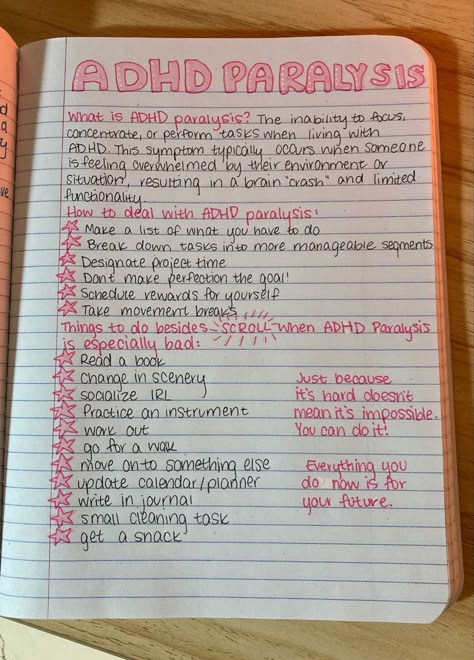 ADHD PARALYSIS
What is ADHD paralysis? The inability to focus,
concentrate, or perform tasks when living with
ADHD. This symptom typically occurs when someone
is feeling overwhelmed by their environment or
situation, resulting in a brain "crash" and limited
functionality.
How to deal with ADHD paralysis:
Make a list of what you have to do
Break down tasks into more manageable segments
Designate project time
Dont make perfection the goal!
Schedule rewards for yourself
Take movement breaks
Things to do besides SCROLL when ADHD Paralysis
is especially bad:
Read a book
change in scenery
socialize IRL
Practice an instrument
work out
go for a walk
move on to something else
update calendar/planner
write in journal
small cleaning task
get a snack
Just because
it's hard doesn't
mean it's impossible.
You can do it!
Everything you
do now is for
your future.